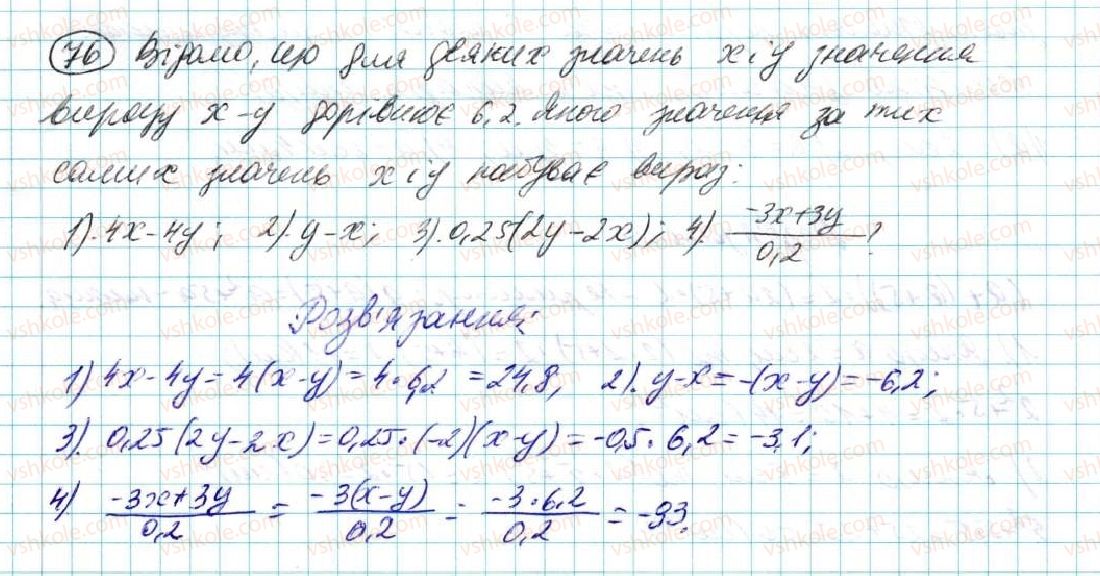 76 Відомо, що для деяких значень x і y значення
виразу x-y дорівнює 6,2. Якого значення за тих
самих значень x і y набуває вираз:
1). 4x-4y; 2). y-x; 3). 0,25(2y-2x); 4). \frac{-3x+3y}{0,2}?
Розв'язання:
1) 4x-4y=4(x-y)=4·6,2=24,8, 2). y-x=-(x-y)=-6,2;
3). 0,25(2y-2x)=0,25·(-2)(x-y)=-0,5·6,2=-3,1;
4) \frac{-3x+3y}{0,2} = \frac{-3(x-y)}{0,2} = \frac{-3·6,2}{0,2} = -93.